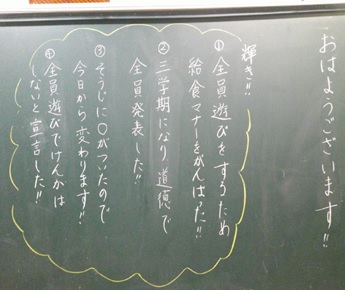 おはようございます!!
輝き!!
①全員遊びをするため
給食マナーをがんばった!!
②三学期になり道徳で
全員発表した!!
③そうじに○がついたので
今日から変わります!!
④全員遊びでけんかは
しないと宣言した!!